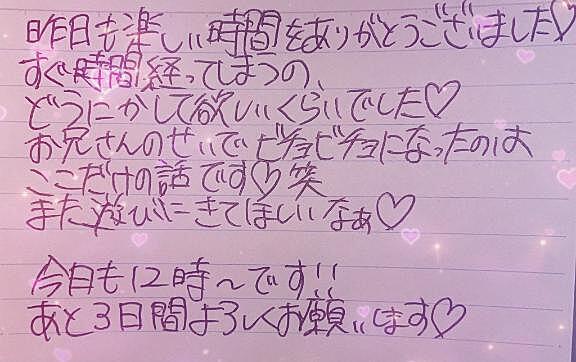 昨日も楽しい時間をありがとうございました♡
すぐ時間経ってしまうの、
どうにかして欲しいくらいでした♡
お兄さんのせいでビチョビチョになったのは
ここだけの話です♡笑
また遊びにきてほしいなぁ♡
今日も12時〜です!!
あと3日間よろしくお願いします♡